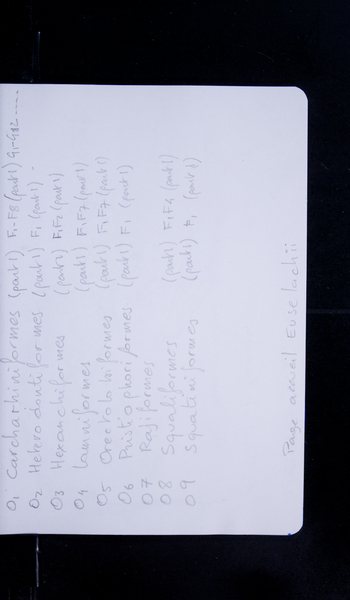 O1 Carcharhiniformes (part 1) F1-F8 (part 1) G1-G12-----
O2 Heterodontiformes (part 1) F1 (part 1) -
O3 Hexanchiformes (part 1) F1F2 (part 1)
O4 Lamniformes (part 1) F1F7 (part 1)
O5 Orectolobiformes (part 1) F1F7 (part 1)
O6 Pristiophoriformes (part 1) F1 (part 1)
O7 Rajiformes
O8 Squaliformes (part 1) F1F4 (part 1)
O9 Squatiniformes (part 1) F1 (part 1)
Page accueil Euselachii